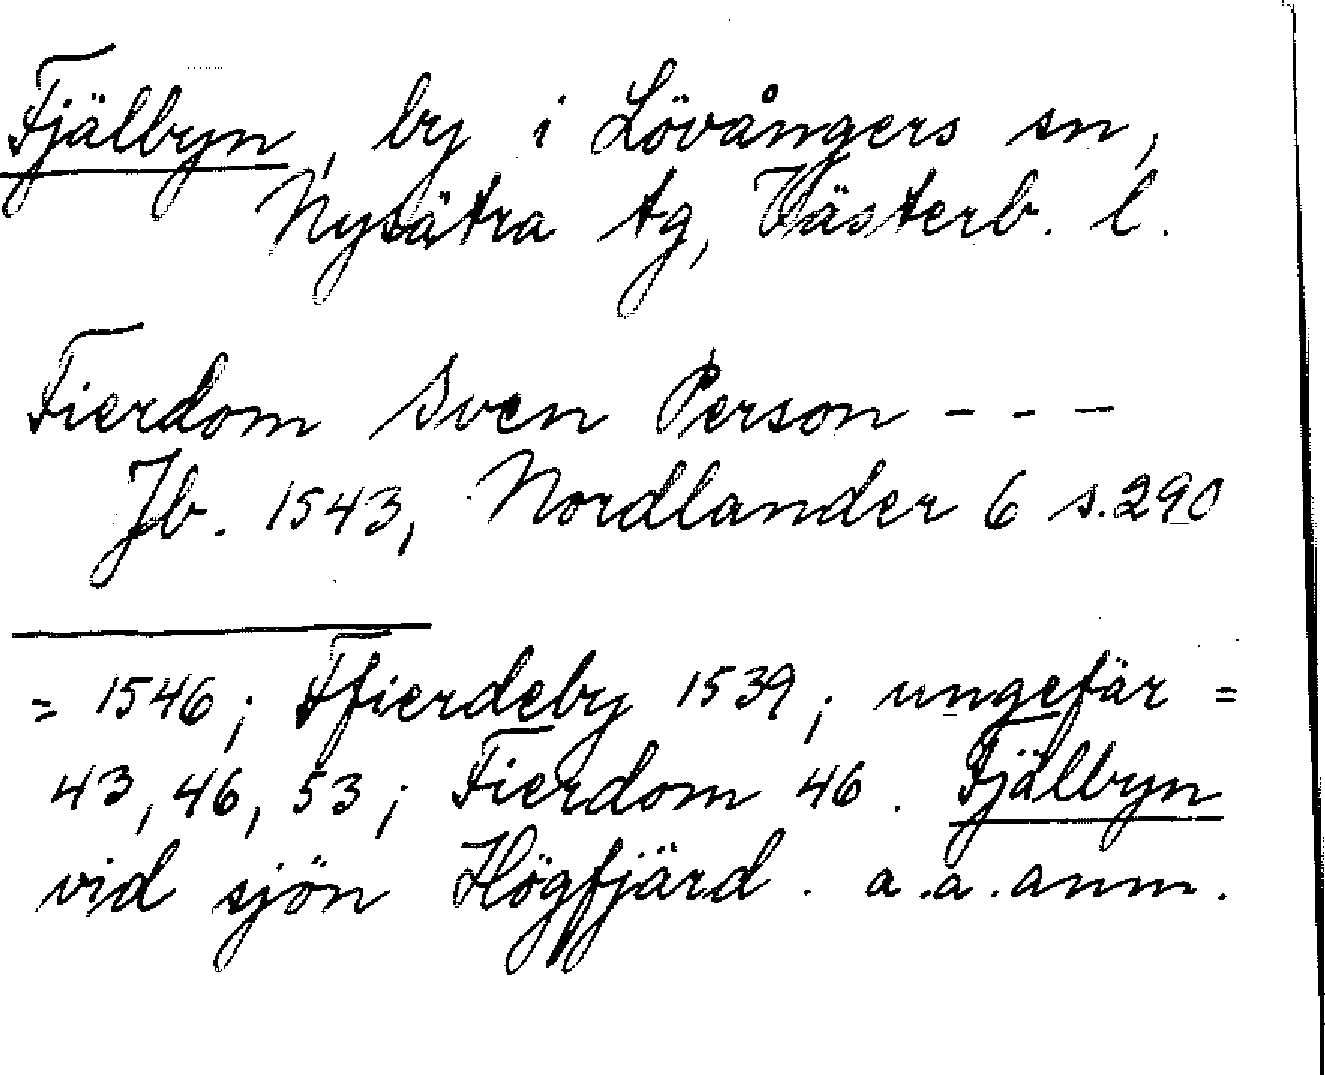 Fjälbyn, by i Lövångers sn,
Nysätra tg, Västerb. l.
Fierdom Sven Person - - -
Jb. 1543, Nordlander 6 s. 290
= 1546; Ffierdeby 1539; ungefär =
43, 46, 53; Fierdom 46. Fjälbyn
vid sjön Högfjärd. a.a. anm.